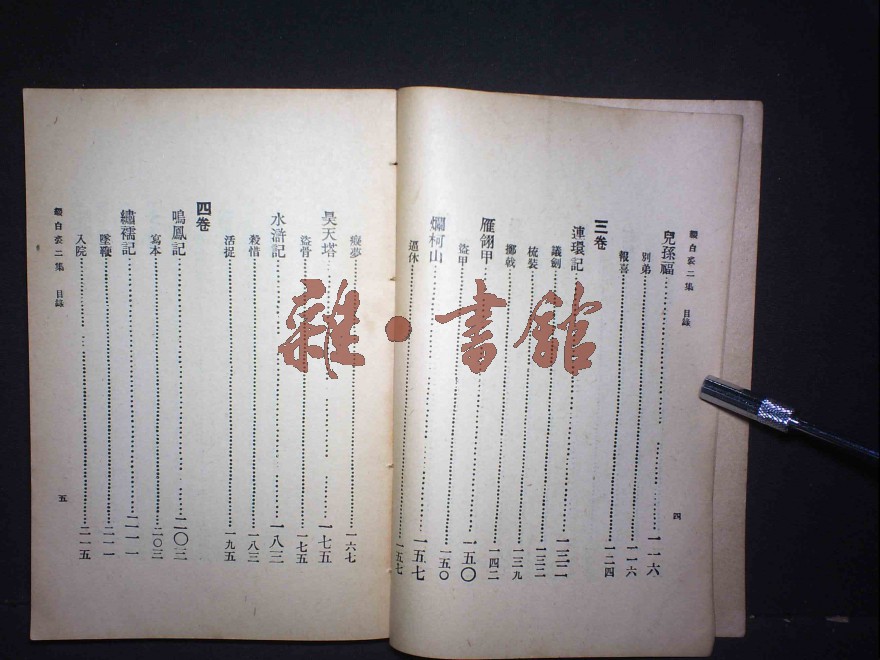 綴白裘二集 目錄
兒孫福 一一六
別弟 一一六
報喜 一二四
三卷
連環記 一三二
議劍 一三二
梳裝 一三二
擲戟 一三九
雁翎甲 一四二
盜甲 一五〇
爛柯山 一五七
逼休 一五七
四
癡夢 一六七
昊天塔 一七五
盜骨 一七五
水滸記 一八三
殺惜 一八三
活捉 一九五
四卷
鳴鳳記 二〇三
寫本 二〇三
繡襦記 二一一
墜鞭 二一一
入院 二一五
綴白裘二集 目錄
五
雜·書館